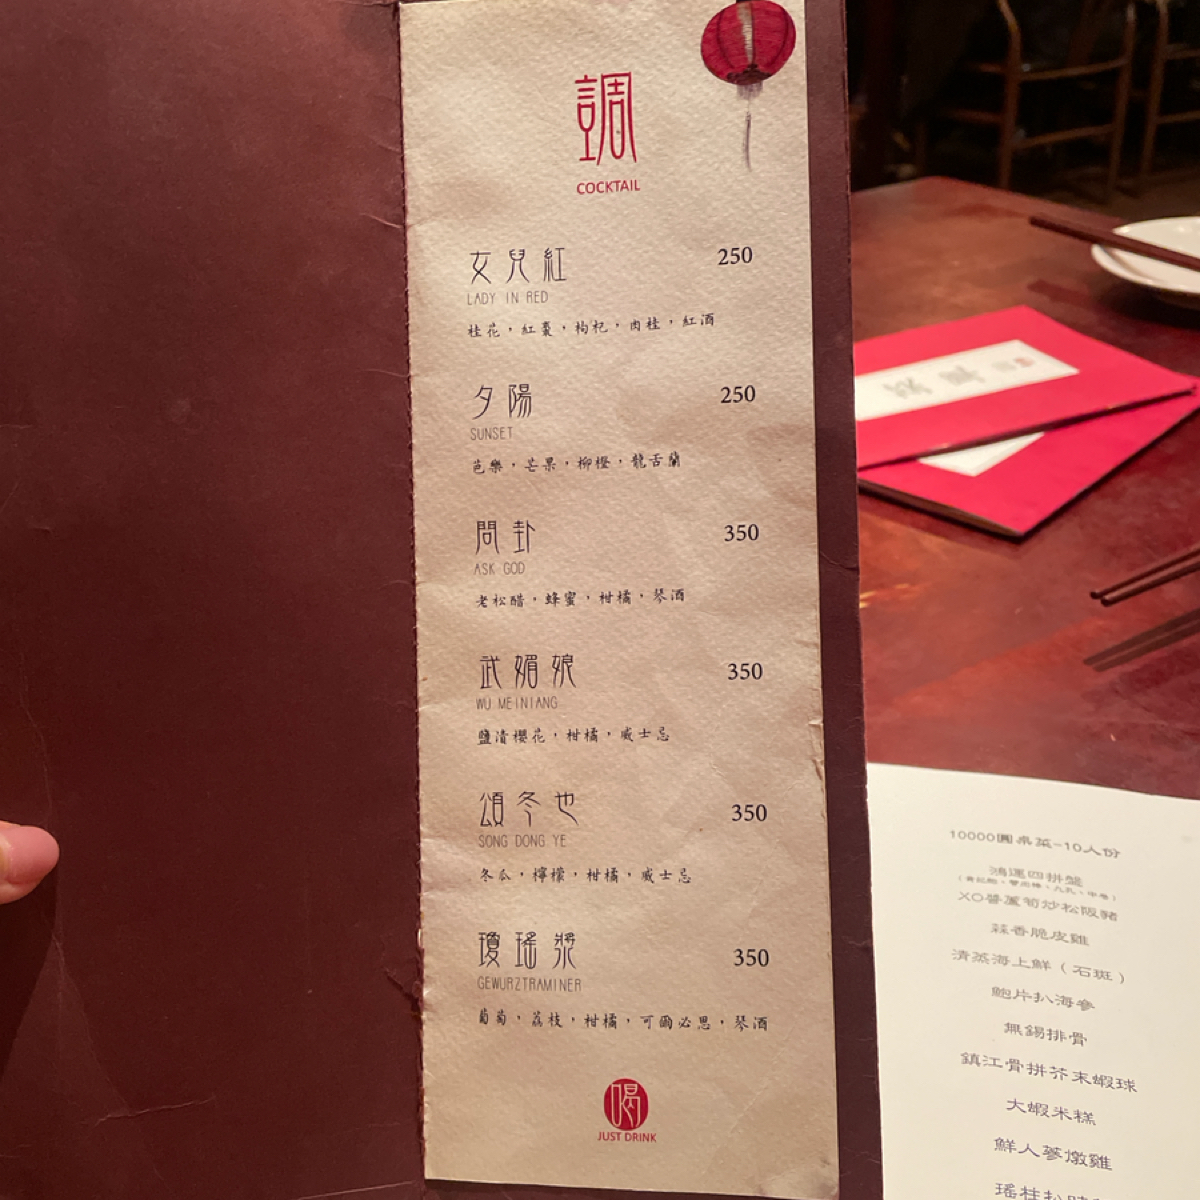 調
COCKTAIL
女兒紅 250
LADY IN RED
桂花，紅棗，枸杞，肉桂，紅酒
夕陽 250
SUNSET
芭樂，芒果，柳橙，龍舌蘭
問卦 350
ASK GOD
老松醋，蜂蜜，柑橘，琴酒
武媚娘 350
WU MEINIANG
鹽漬櫻花，柑橘，威士忌
頌冬也 350
SONG DONG YE
冬瓜，檸檬，柑橘，威士忌
瓊瑤漿 350
GEWURZTRAMINER
葡萄，荔枝，柑橘，可爾必思，琴酒
喝
JUST DRINK
10000圓桌菜-10人份
鴻運四拼盤
XO醬蘆筍炒松阪豬
蒜香脆皮雞
清蒸海上鮮（石斑）
鮑片扒海參
無錫排骨
鎮江骨拼芥末蝦球
大蝦米糕
鮮人蔘燉雞
瑤柱扒